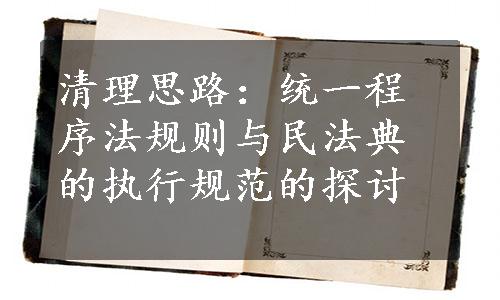 清理思路：统一程
序法规则与民法典
的执行规范的探讨